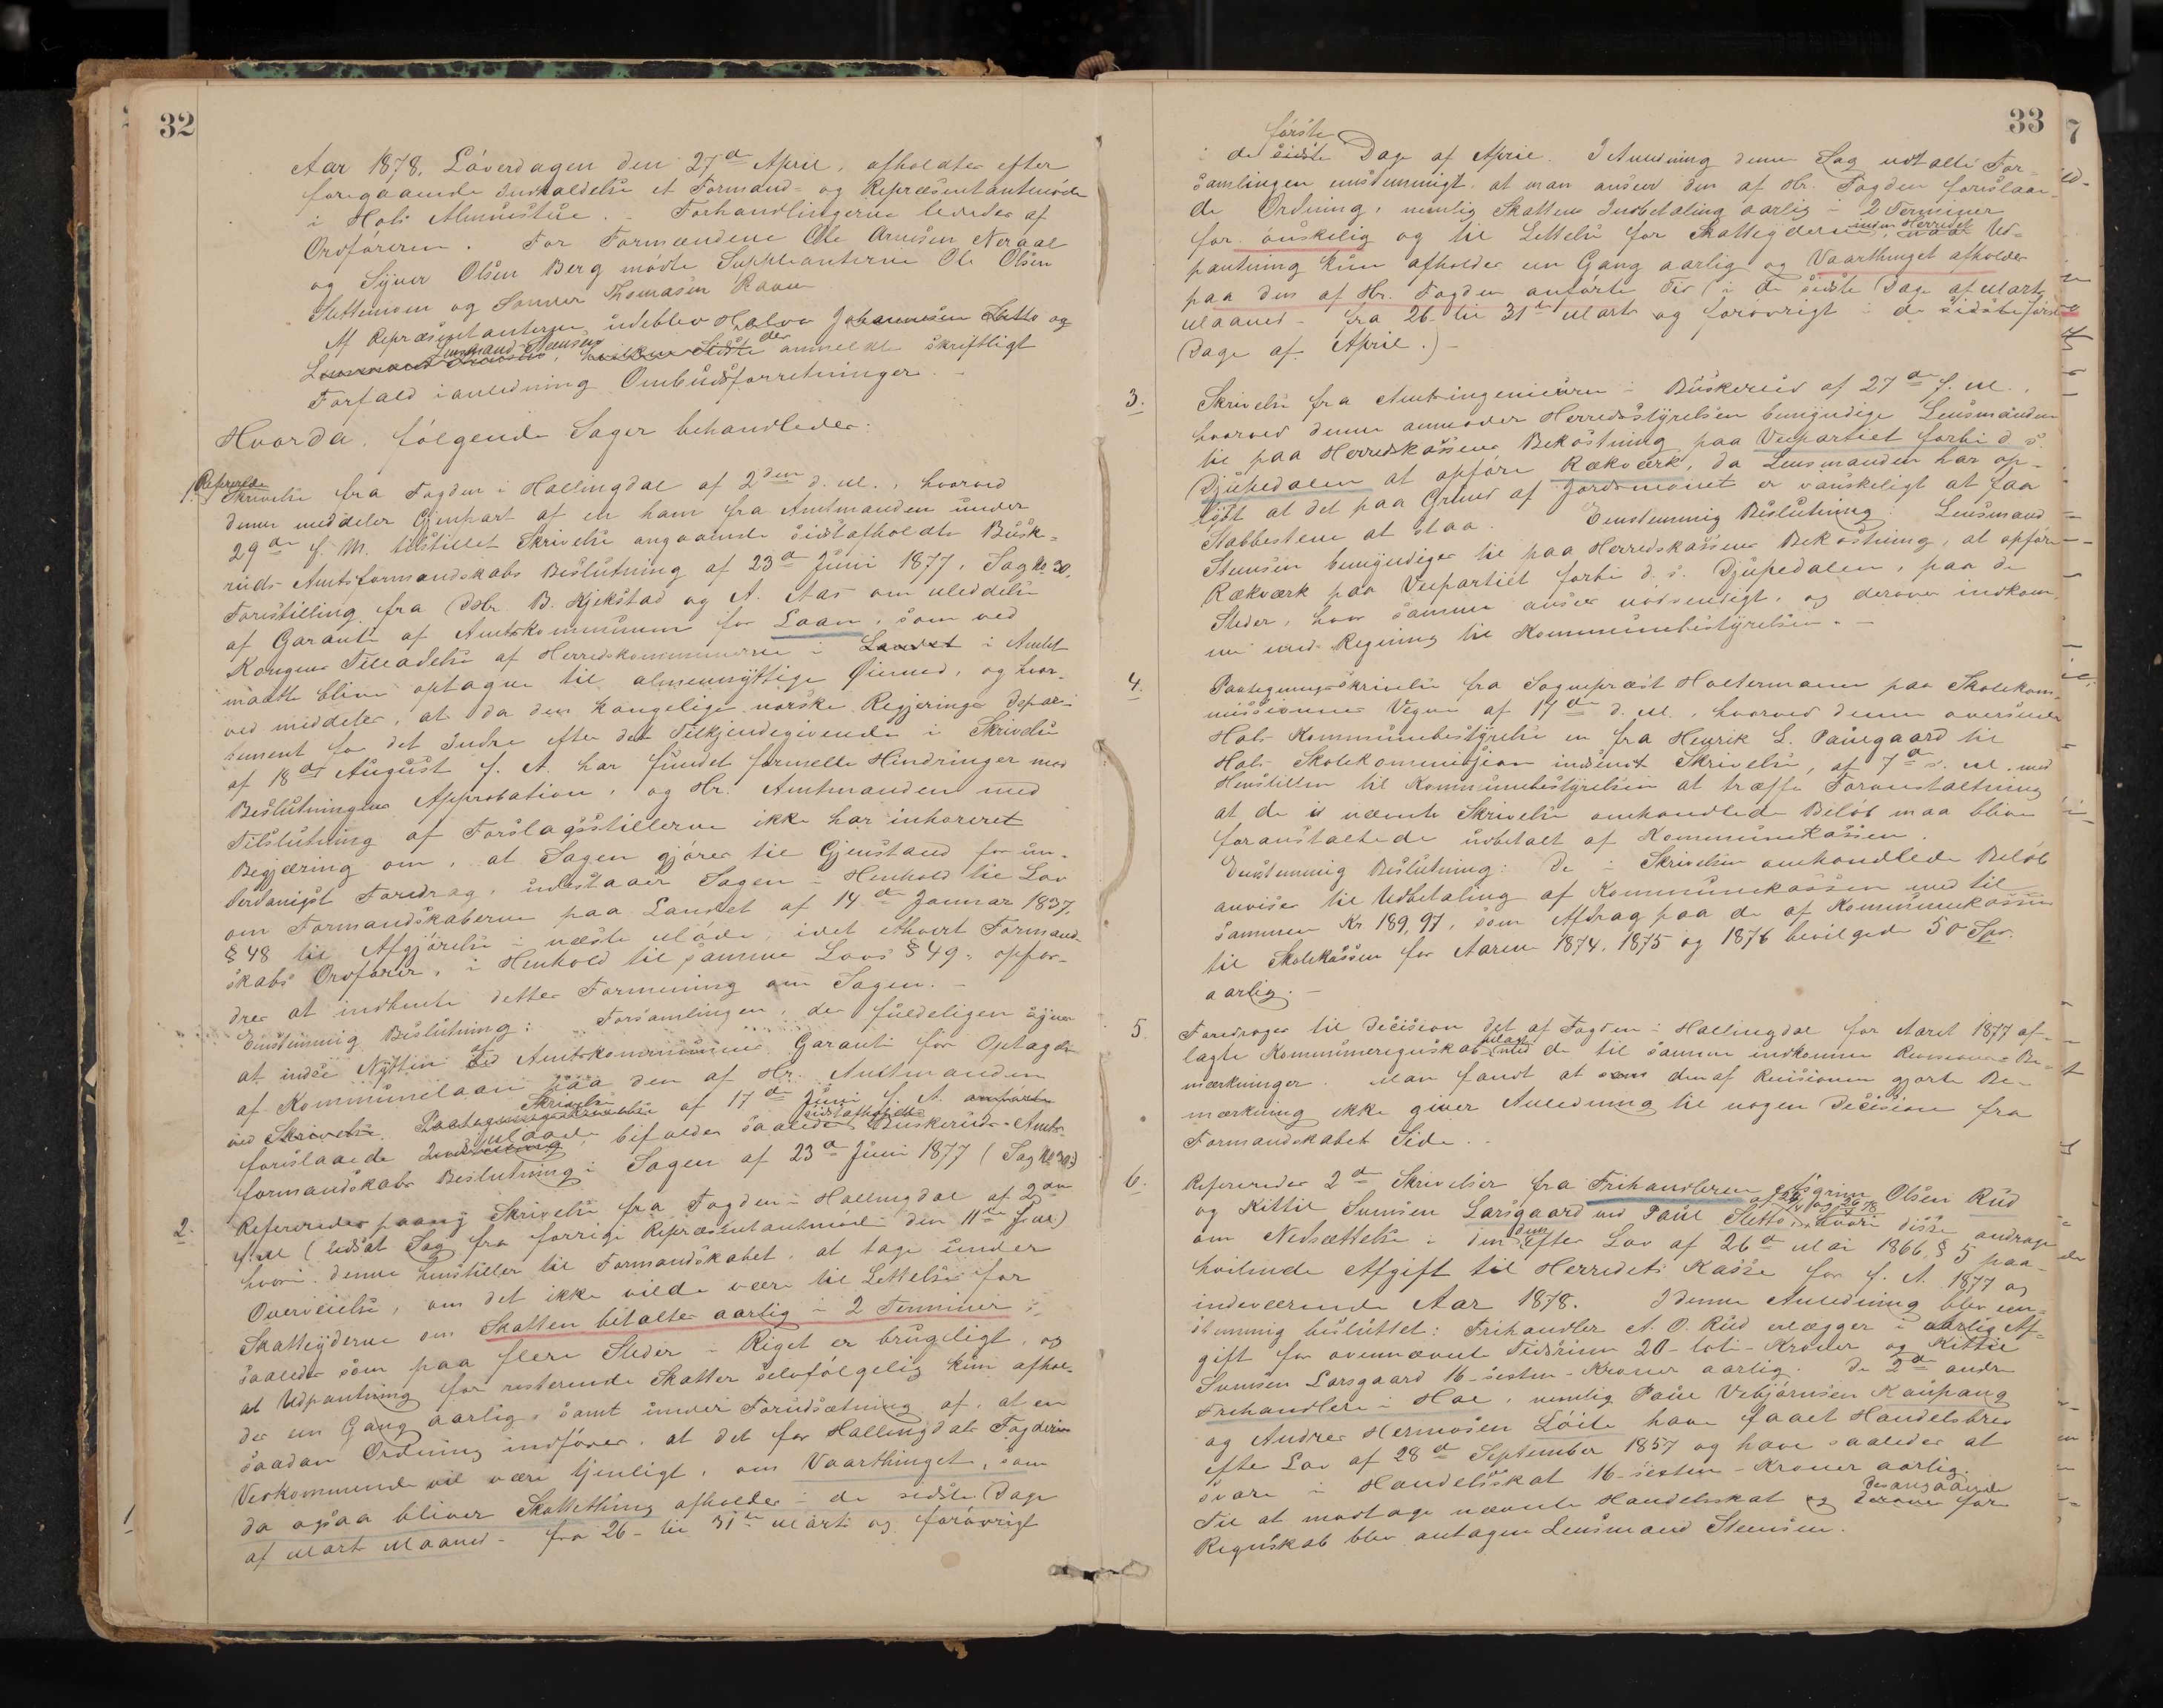 32
Aar 1878, Löverdagen den 27de April, afholdtes efter
foregaaende Indkaldelse et Formand- og Repræsentantmöde
i Hols Almuestue. - Forhandlingerne lededes af
Ordföreren. For Formændene Ole Arnesen Neraal
og Syver Olsen Berg mödte Suppleanterne Ole Olsen
Slettemoen og Sander Thomasen Raaen
Af Repræsentanterne udeblev Halvor Johannesen Sletto og
Lensmand Stensen, der anmeldte skriftligt
Forfald i anledning Ombudsforretninger. -
Hvorda, fölgende Sager behandledes:
1. Refereredes
Skrivelse fra Fogden i Hallingdal af 2den d. M., hvorved
denne meddeler Gjenpart af en ham fra Amtmanden under
29de f. M. tilstillet Skrivelse angaaende sidstafholdte Busk-
ruds Amtsformandskabs Beslutning af 23de Juni 1877, Sag No. 30,
Forestilling fra DHr. B. Kjekstad og A. Aas om Meddelse
af Garanti af Amtskommunen for Laan, som ved
Kongens Tilladelse af Herredskommunerne i Landet i Amtet
maatte blive optagne til almennyttige Öiemed, og hvor-
ved meddeles, at da den kongelige norske Regjerings Depar-
tement for det Indre efter det Tilkjendegivende i Skrivelse
af 18de August f. A. har fundet formelle Hindringer mod
Beslutningens Approbation, og Hr. Amtmanden med
Tilslutning af Forslagsstillerne ikke har inhæreret
Begjæring om, at Sagen gjöres til Gjenstand for un-
derdanigst Foredrag, udestaaer Sagen i Henhold til Lov
om Formandskaberne paa Landet af 14de Januar 1837,
§ 48 til Afgjörelse i næste Möde, idet ethvert Formand-
skabs Ordförer, i Henhold til samme Lovs § 49, opfor-
dres at indhente dettes Formening om Sagen. -
Enstemmig Beslutning: Forsamlingen, der fuldeligen synes
at indsee Nytten af Amtskommunens Garanti for Optagelse
af Kommunelaan paa den af Hr. Amtmanden
ved Skrivelse Paategningsskrivelse Skrivelse af 17de Juni f. A. anförte
foreslaaede Maade, bifalder saaledes sidstafholdte Buskeruds Amts-
formandskabs Beslutning i Sagen af 23de Juni 1877 (Sag No 30.)
2. Refereredes paany Skrivelse fra Fogden i Hallingdal af 2den
f. M (udsat Sag fra forrige Repræsentantmöde den 11te f. M.)
hvori denne henstiller til Formandskabet, at tage under
Overveielse, om det ikke vilde være til Lettelse for
Skatteyderne om Skatten betaltes aarlig i 2 Terminer,
saaledes som paa flere Steder i Riget er brugeligt, og
at Udpantning for resterende Skatter selvfölgelig kun afhol-
des en Gang aarlig, samt under Forudsætning af, at en
saadan Ordning indföres, at det for Hallingdals Fogderies
Vedkommende vil være tjenligt, om Vaarthinget, som
da ogsaa bliver Skattething afholdes i de sidste Dage
af Marts Maaned - fra 26- til 31te Marts og forövrigt
33
förste
i de sidste Dage af April. I Anledning denne Sag udtalte For-
samlingen enstemmigt, at man anseer den af Hr. Fogden foreslaae-
de Ordning, nemlig Skattens Indbetaling aarlig i 2 Terminer
for önskelig og til Lettelse for Skatteyderne inden Herredet, naar Ud-
pantning kun afholdes en Gang aarlig og Vaarthinget afholdes
paa den af Hr. Fogden anförte Tid (i de sidste Dage af Marts
Maaned - fra 26- til 31te Marts og forövrigt i de sidste förste
Dage af April.) -
3. Skrivelse fra Amtsingenieuren i Buskerud af 27de f. M.,
hvorved denne anmoder Herredsstyrelsen bemyndige Lensmanden
til paa Herredskassens Bekostning paa Veipartiet forbi d. s.
Djupedalen at opföre Rækværk, da Lensmanden har op-
lyst at det paa Grund af Jordsmonet er vanskeligt at faa
Stabbestene at staa. Enstemmig Beslutning: Lensmand
Stensen bemyndiges til paa Herredskassens Bekostning, at opföre
Rækværk paa Veipartiet forbi d. s. Djupedalen, paa de
Steder, hvor samme ansees nödvendigt, og derover indkom-
me med Regning til Kommunebestyrelsen. -
4. Paategningsskrivelse fra Sognepræst Holtermann paa Skolekom-
missionens Vegne af 17de d. M., hvorved denne oversender
Hols Kommunebestyrelse en fra Henrik L. Paulsgaard til
Hols Skolekommission indsendt Skrivelse, af 7de s. M. med
Henstillen til Kommunebestyrelsen at træffe Foranstaltning
at de i nævnte Skrivelse omhandlede Belöb maa blive
foranstaltede udbetalt af Kommunekassen.
Enstemmig Beslutning: De i Skrivelsen omhandlede Belöb
anvises til Udbetaling af Kommunekassen med til-
sammen Kr 189,97, som Afdrag paa de af Kommunekassen
til Skolekassen for Aarene 1874, 1875 og 1876 bevilgede 50 Spd.
aarlig. -
5. Foredroges til Decision det af Fogden i Hallingdal for Aaret 1877 af-
lagte Kommuneregnskab bilagt med de til samme indkomne Revisions-Be-
mærkninger. Man fandt at den af Revisionen gjorte Be-
mærkning ikke giver Anledning til nogen Decision fra
Formandskabets Side. -
6. Refereredes 2de Skrivelser fra Frihandlerne Asgrim Olsen Rud
og Kittil Svensen Larsgaard ved Paul Sletto, hvori disse andrage
om Nedsættelse i den dem efter Lov af 26de Mai 1866 § 5 paa-
hvilende Afgift til Herredets Kasse for f. A. 1877 og
indeværende Aar 1878. I denne Anledning blev een-
stemmig besluttet: Frihandler A. O. Rud erlægger i aarlig Af-
gift for ovennævnte Tidsrum 20- toti- Kroner og Kittil
Svensen Larsgaard 16- sexten- Kroner aarlig. De 2de andre
Frihandlere i Hol, nemlig Paul Vebjörnsen Kaupang
og Andres Hermosen Löite have faaet Handelsbrev
efter Lov af 28de September 1857 og have saaledes at
svare i Handelsskat 16- sexten- Kroner aarlig.
Til at modtage nævnte Handelsskat og derover desangaaende före
Regnskab blev antagen Lensmand Stensen.